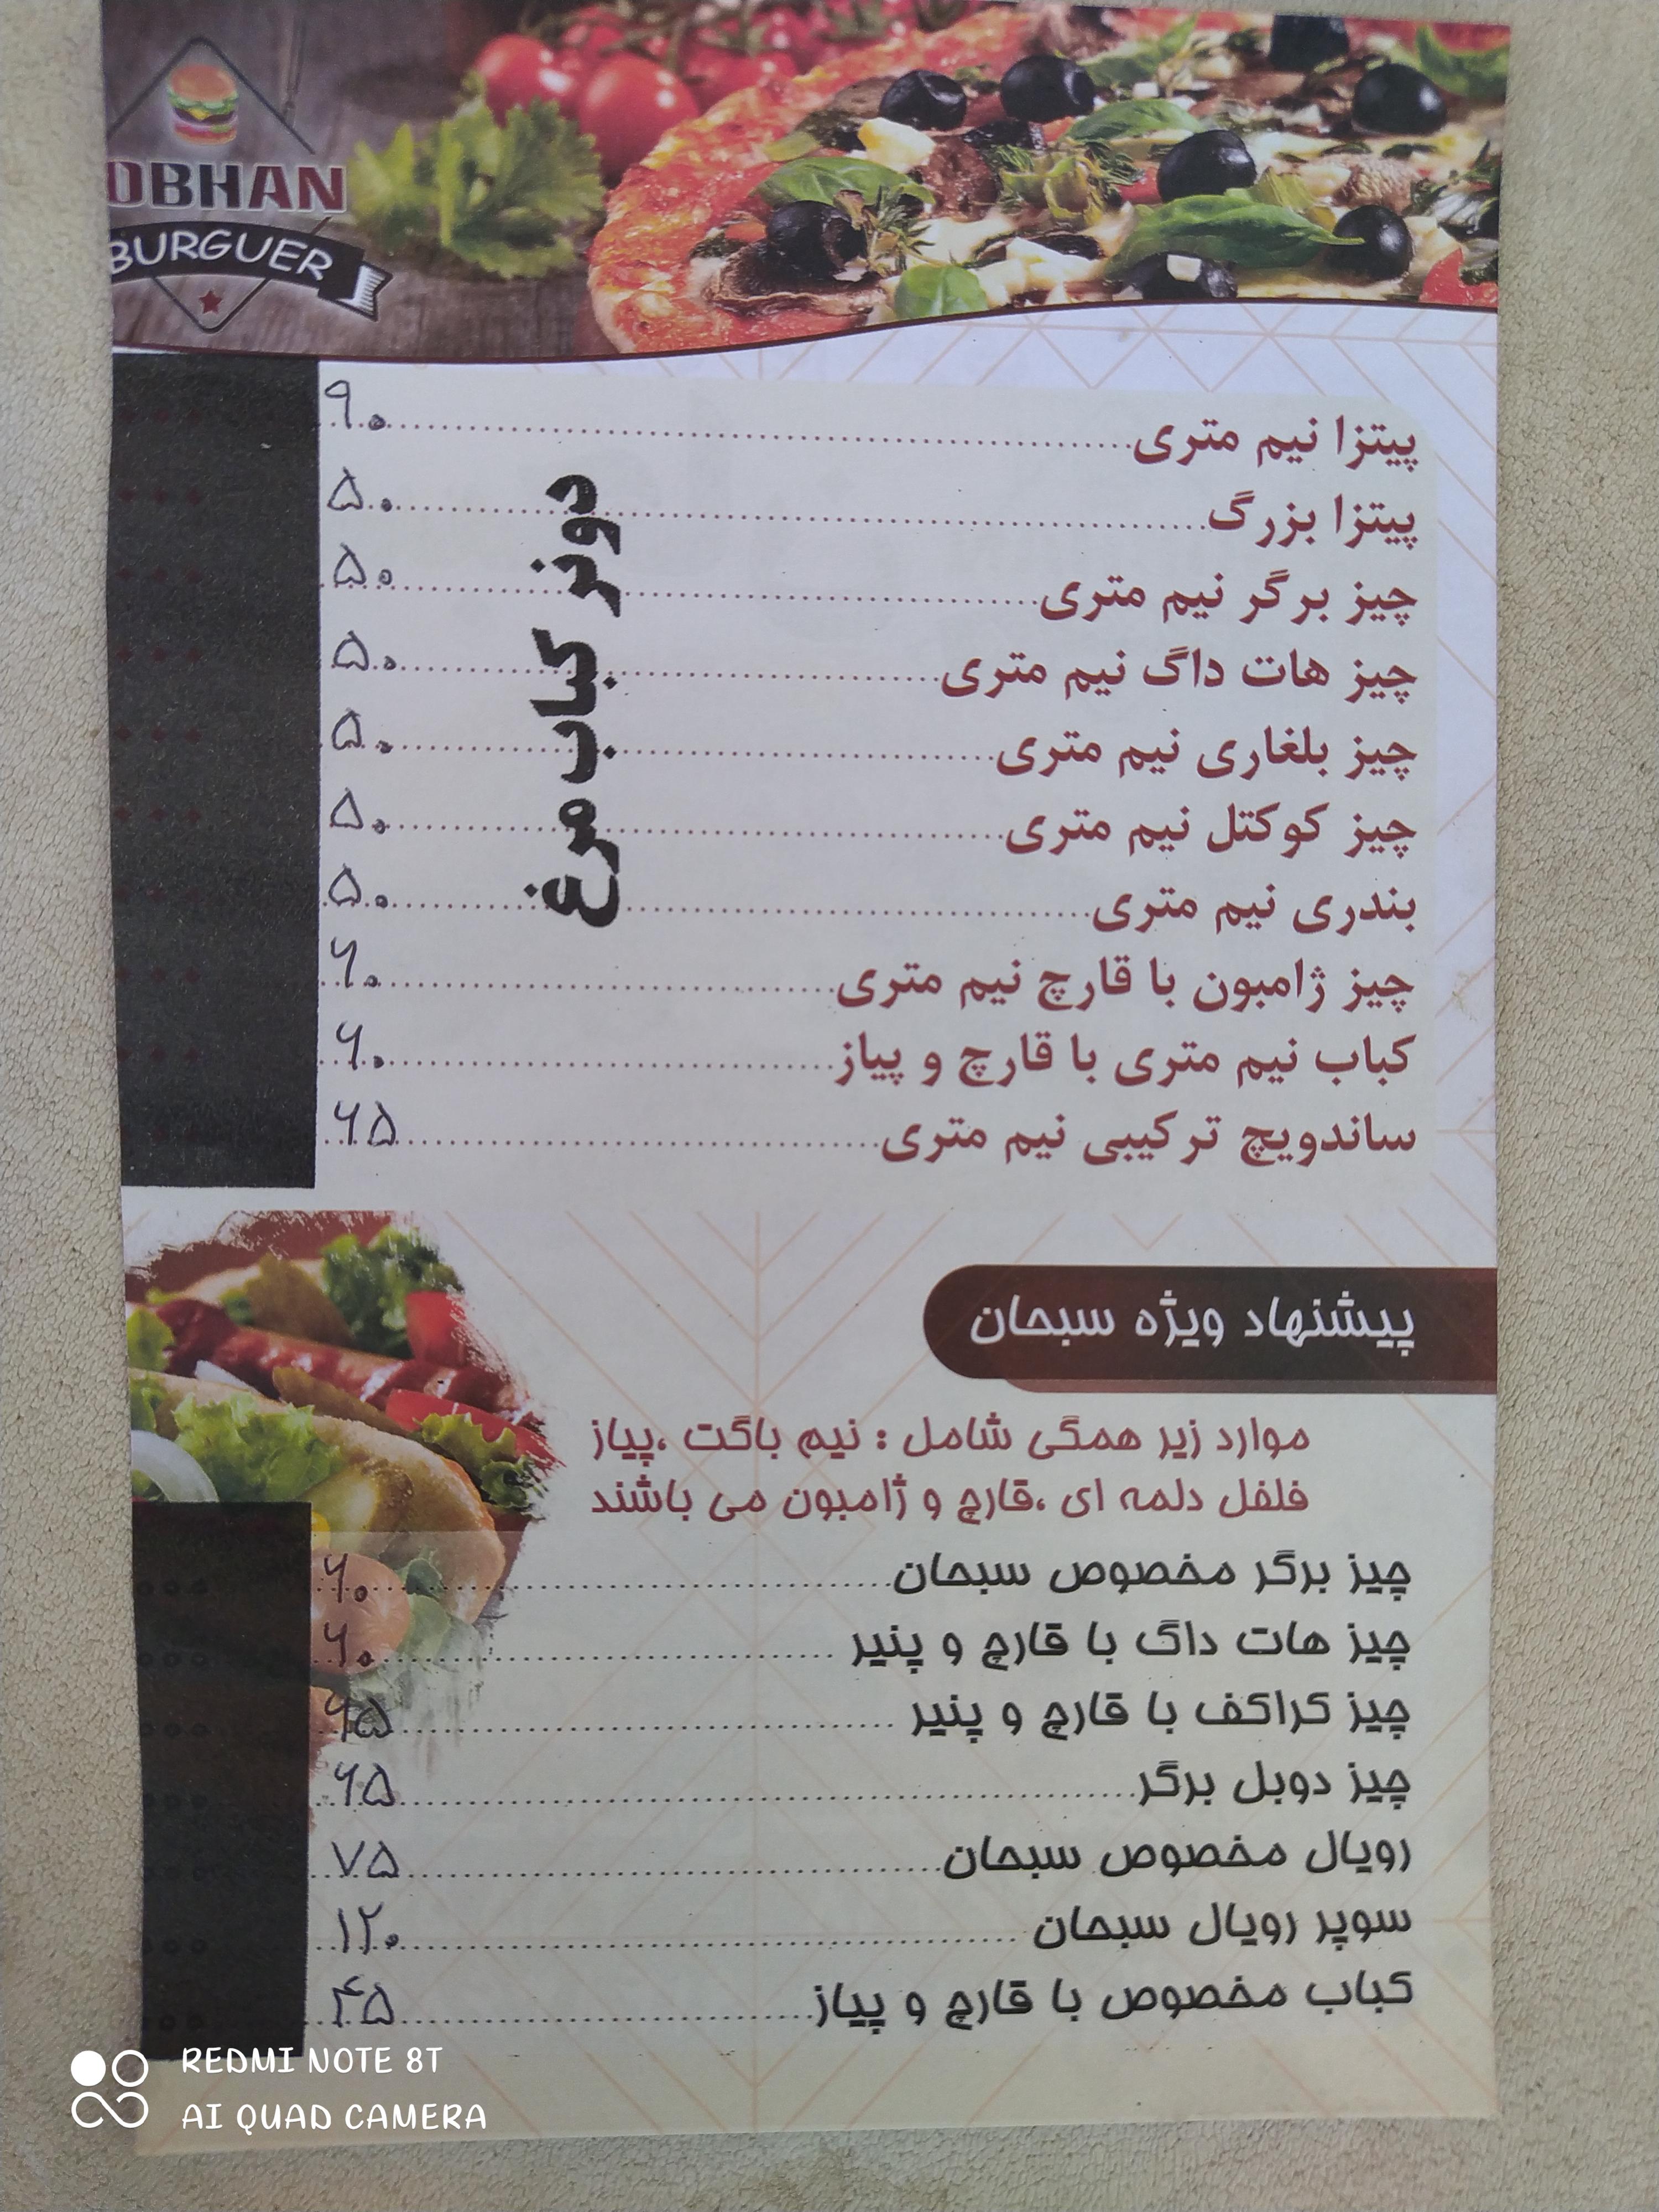 OBHAN
BURGUER
پیتزا نیم متری ۹۰
پیتزا بزرگ ۵۰
چیز برگر نیم متری ۵۰
چیز هات داگ نیم متری ۵۰
چیز بلغاری نیم متری ۵۰
چیز کوکتل نیم متری ۵۰
بندری نیم متری ۵۰
چیز ژامبون با قارچ نیم متری ۶۰
کباب نیم متری با قارچ و پیاز ۶۰
ساندویچ ترکیبی نیم متری ۶۵
دونر کباب مرغ
پیشنهاد ویژه سبحان
موارد زیر همگی شامل : نیم باگت ،پیاز
فلفل دلمه ای ،قارچ و ژامبون می باشند
چیز برگر مخصوص سبحان ۶۰
چیز هات داگ با قارچ و پنیر ۶۰
چیز کراکف با قارچ و پنیر ۶۵
چیز دوبل برگر ۶۵
رویال مخصوص سبحان ۷۵
سوپر رویال سبحان ۱۲۰
کباب مخصوص با قارچ و پیاز ۴۵
REDMI NOTE 8T
AI QUAD CAMERA